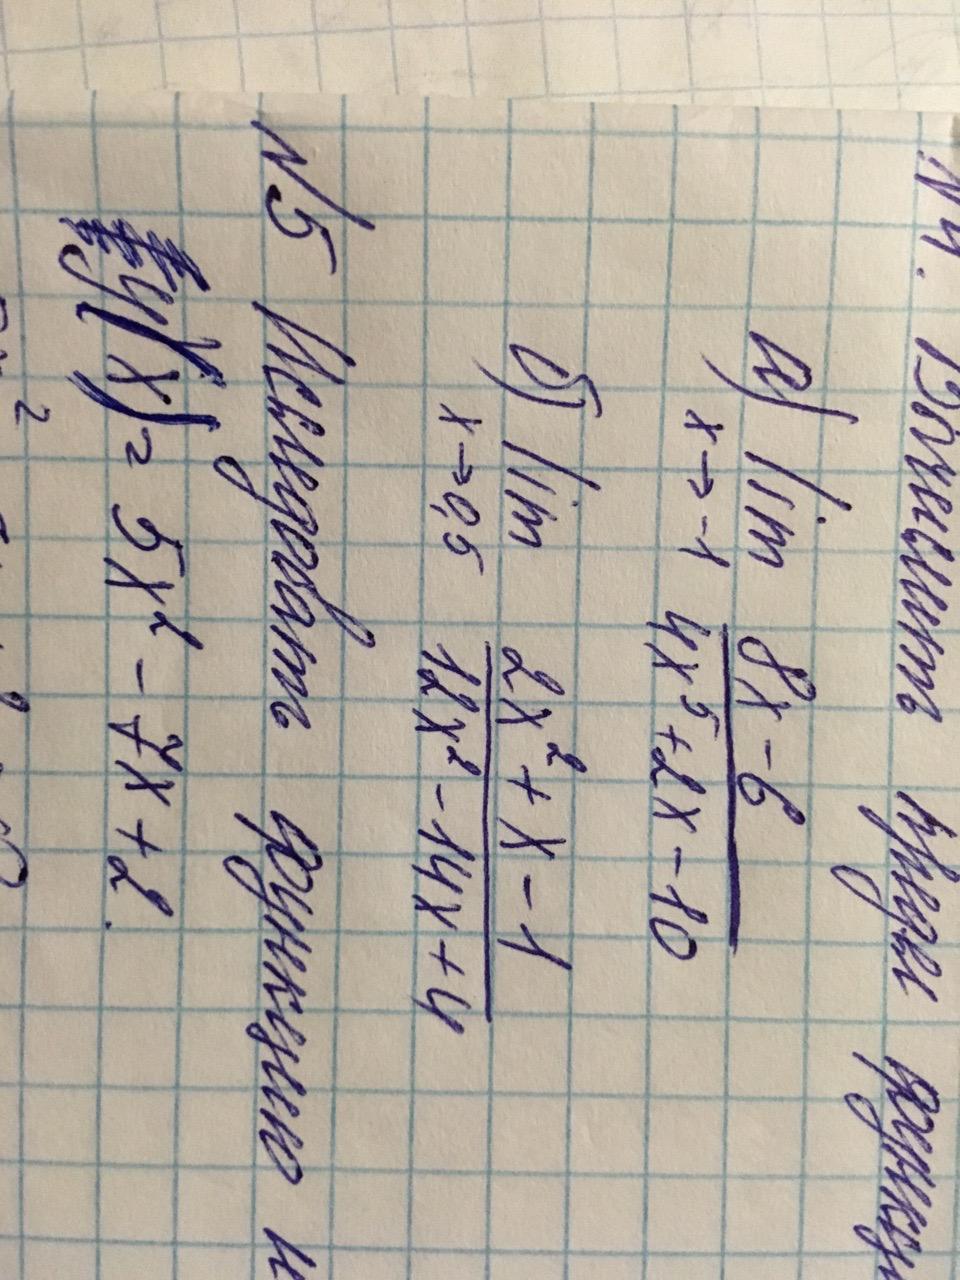 №4. Вычислить пределы функци
а) lim 8x - 6
x→-1 4x⁵ + 2x - 10
б) lim 2x² + x - 1
x→0,5 12x² - 14x + 4
№5 Исследовать функцию и
y(x) = 5x² - 7x + 2.